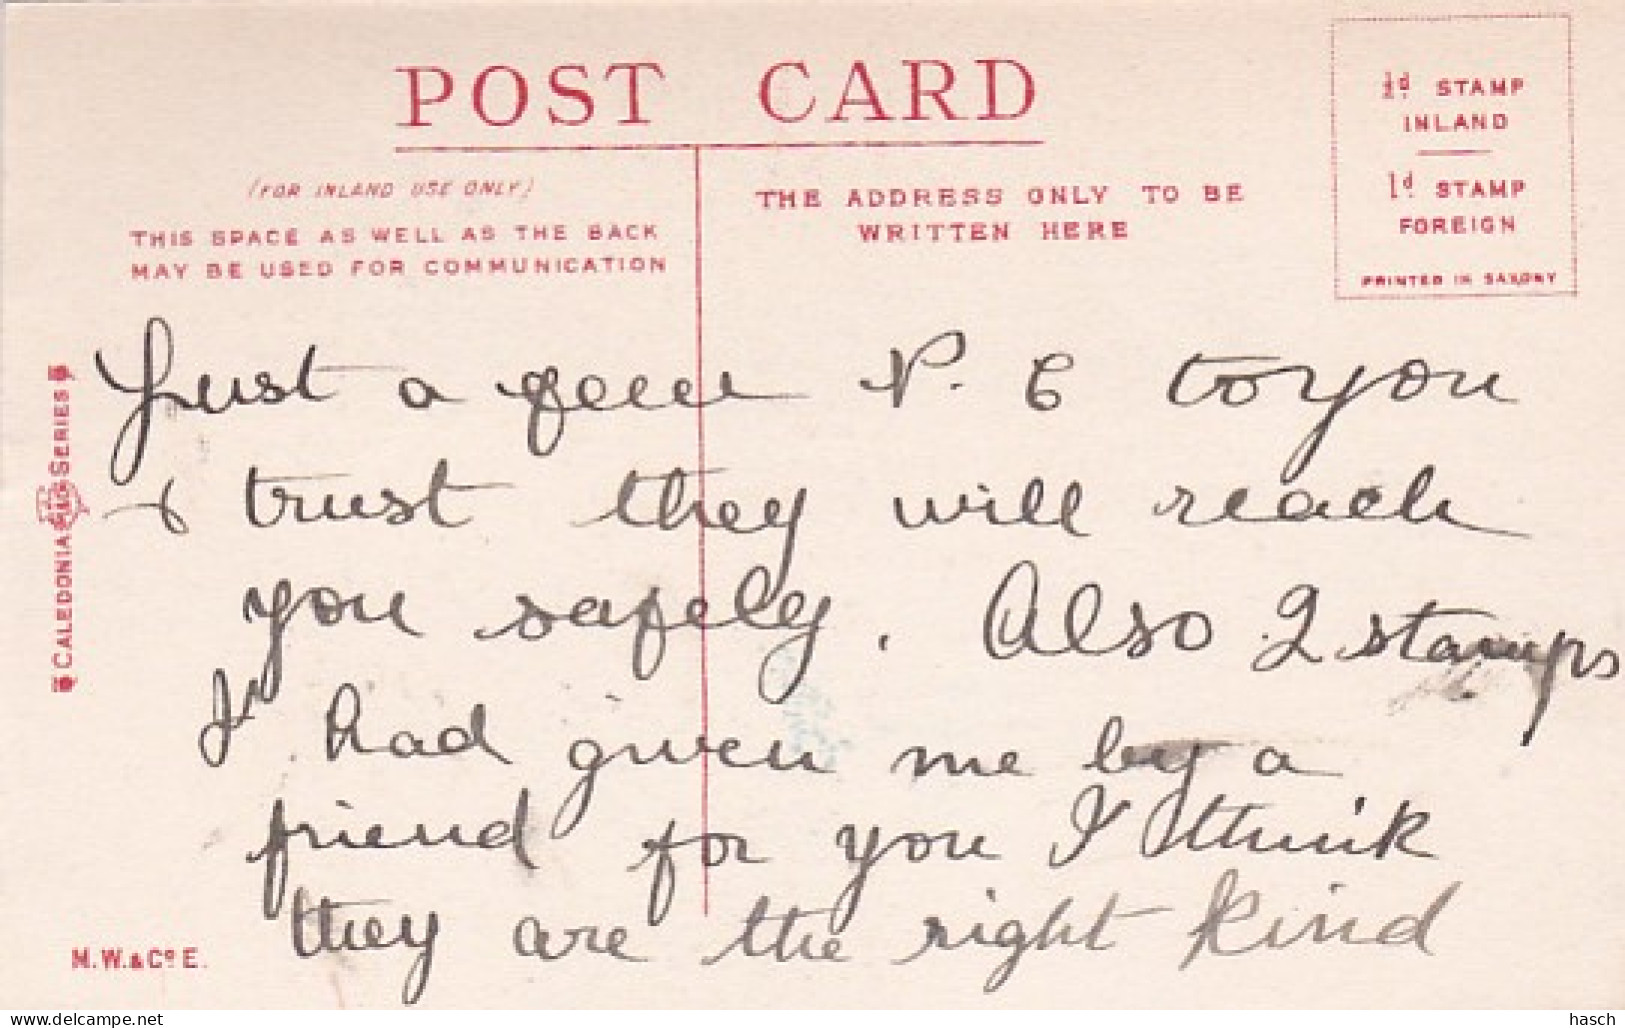 POST CARD
(FOR INLAND USE ONLY)
THIS SPACE AS WELL AS THE BACK
MAY BE USED FOR COMMUNICATION
THE ADDRESS ONLY TO BE
WRITTEN HERE
½d. STAMP
INLAND
1d. STAMP
FOREIGN
PRINTED IN SAXONY
CALEDONIA SERIES
Just a few P. C to you
& trust they will reach
you safely. Also 2 stamps
I had given me by a
friend for you I think
they are the right kind
M.W.&Co E.
www.delcampe.net
hasch